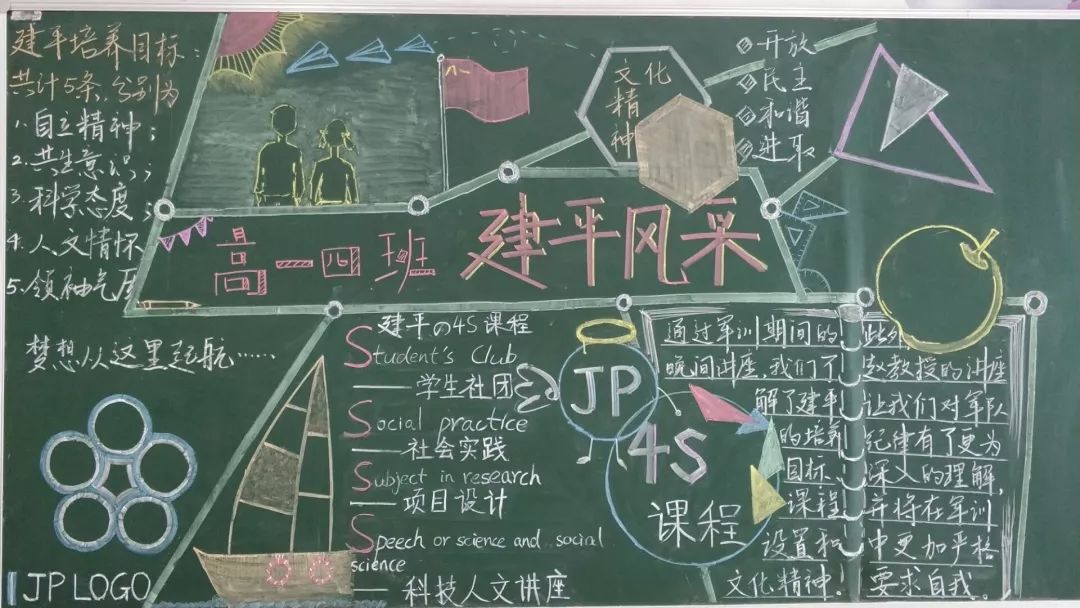 建平培养目标:
共计5条,分别为
1.自立精神;
2.共生意识;
3.科学态度;
4.人文情怀
5.领袖气质
梦想从这里起航……
JP LOGO
文化
精
神
开放
民主
和谐
进取
高一四班 建平风采
建平の4S课程
Student's Club
——学生社团
Social practice
——社会实践
Subject in research
——项目设计
Speech or science and social
science
——科技人文讲座
JP
4S
课程
通过军训期间的
晚间讲座,我们了
解了建平
的培养
目标、
课程
设置和
文化精神!
此外,
赵教授的讲座
让我们对军队
纪律有了更为
深入的理解,
并将在军训
中更加严格
要求自我。